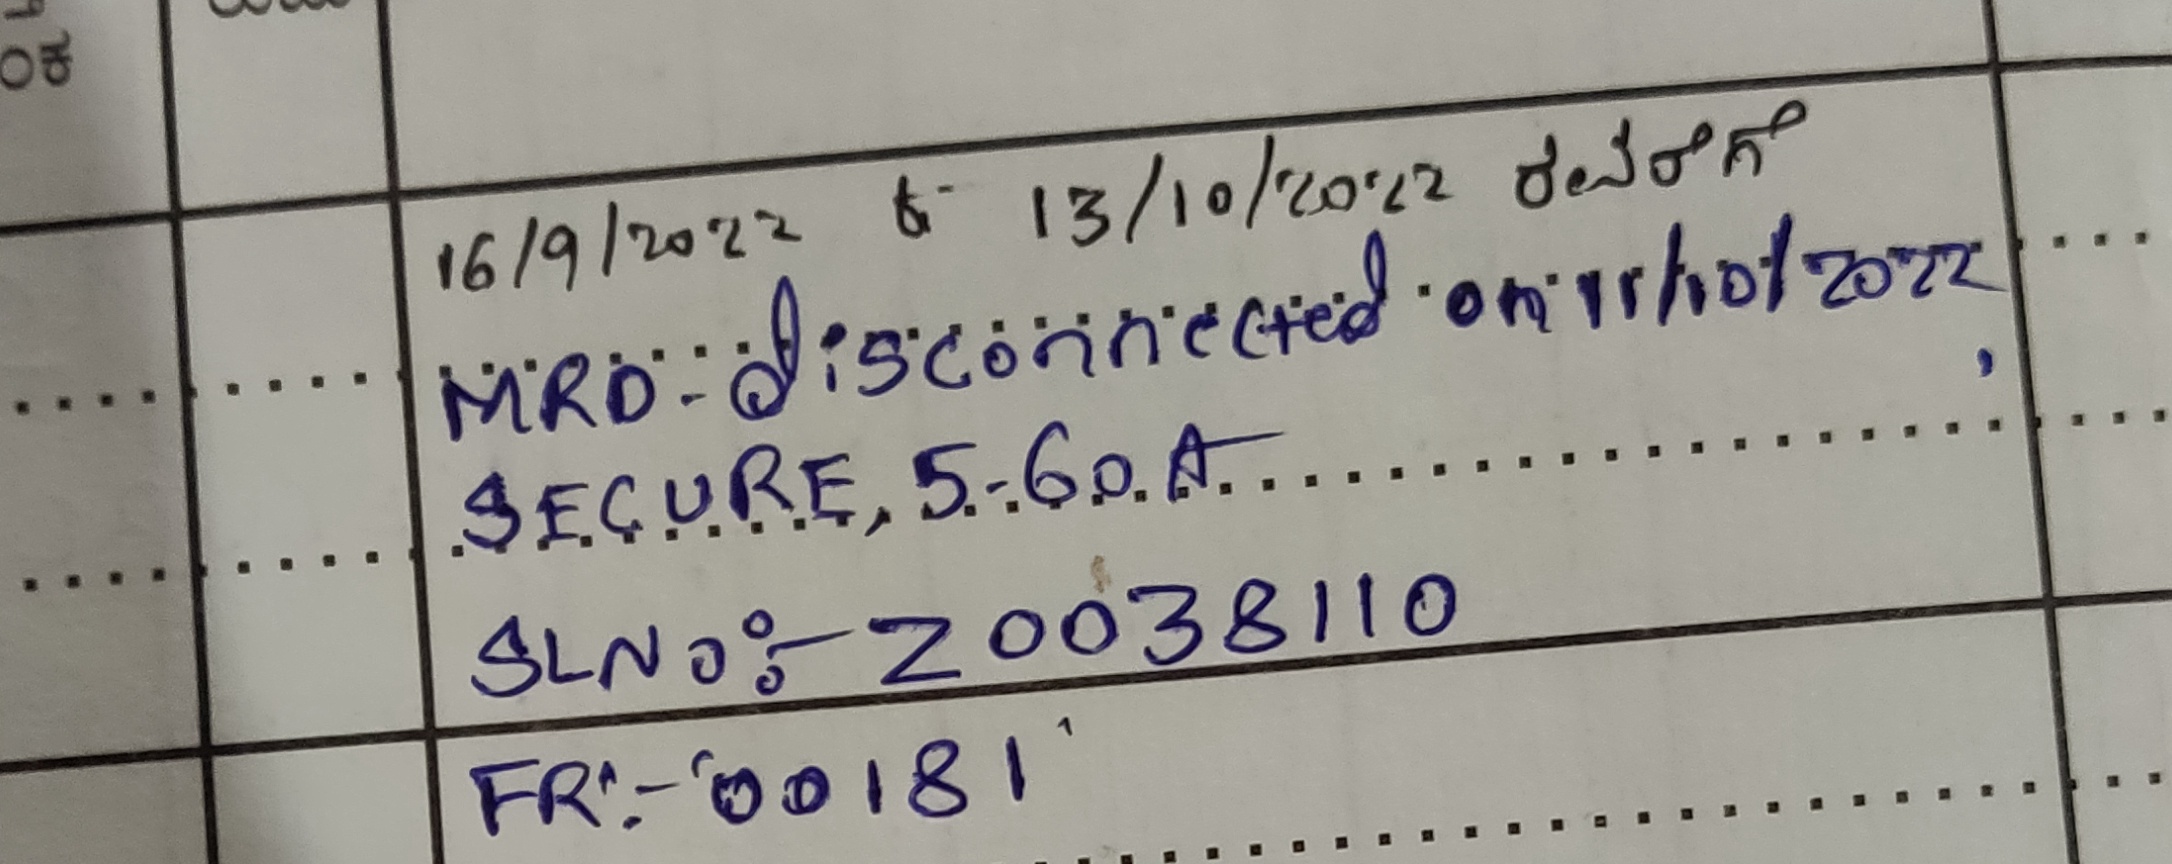 16/9/2022 13/10/2022
MRD:-disconnected on /10/2022,
SECURE, 5-60A
SLNO:-20038110
FR:-'00181'